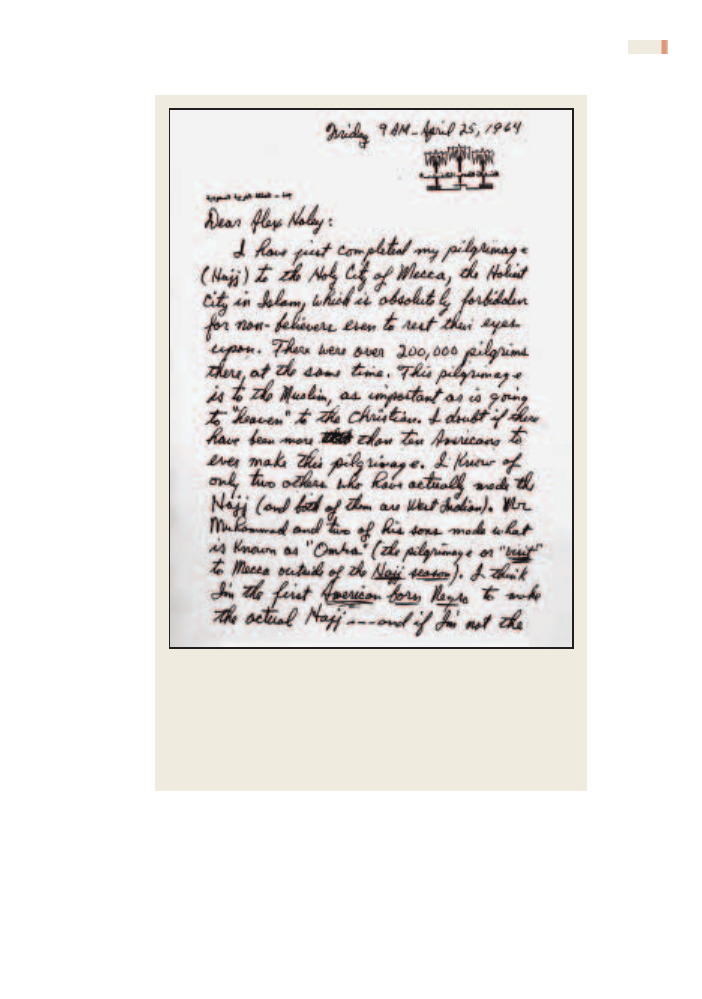 Friday 9 AM - April 25, 1964
Dear Alex Haley:
I have just completed my pilgrimage
(Hajj) to the Holy City of Mecca, the Holiest
City in Islam, which is absolutely forbidden
for non-believers even to rest their eyes
upon. There were over 200,000 pilgrims
there, at the same time. This pilgrimage
is to the Muslim, as important as is going
to "heaven" to the Christian. I doubt if there
have been more than ten Americans to
ever make this pilgrimage. I know of
only two others who have actually made the
Hajj (and both of them are West Indian). Mr.
Muhammad and two of his sons made what
is known as "Omra" (the pilgrimage or "visit"
to Mecca outside of the Hajj season). I think
I'm the first American born Negro to make
the actual Hajj---and if I'm not the